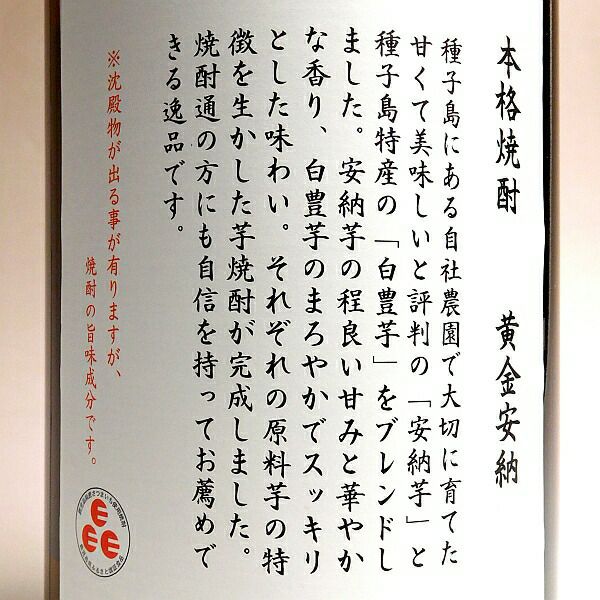 本格焼酎　黄金安納
種子島にある自社農園で大切に育てた
甘くて美味しいと評判の「安納芋」と
種子島特産の「白豊芋」をブレンドし
ました。安納芋の程良い甘みと華やか
な香り、白豊芋のまろやかでスッキリ
とした味わい。それぞれの原料芋の特
徴を生かした芋焼酎が完成しました。
焼酎通の方にも自信を持ってお薦めで
きる逸品です。
※沈殿物が出る事が有りますが、
焼酎の旨味成分です。